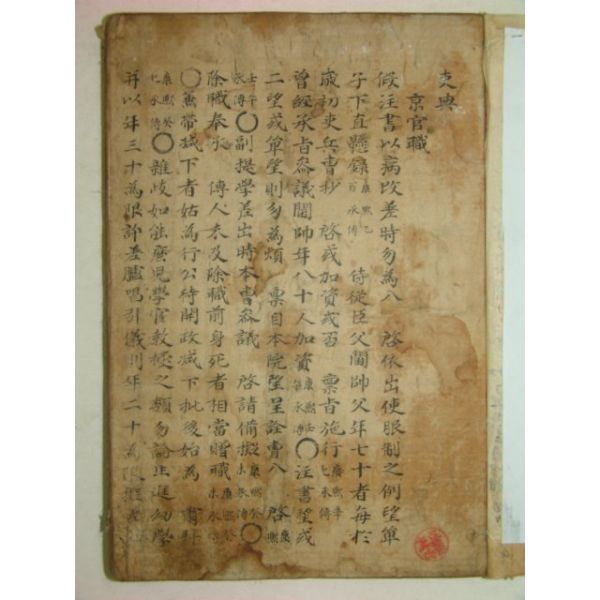 吏典
京官職
假注書以病改差時勿爲入 啓依出使服制之例望單
子下直懸錄 康熙乙百承傳 侍從臣父閫帥父年七十者每於
歲初吏兵曹抄 啓或加資或否 稟旨施行 康熙辛七承傳
曾經承旨參議閫帥年八十人加資 康熙 承傳 ○注書望或
二望或單望則勿爲煩 稟自本院望呈詮曹入 啓 康熙
壬午承傳 ○副提學差出時本曹參議 啓請備擬 康熙癸未承傳 ○
除職奉承 傳人未及除職前身死者相當贈職 康熙癸未承傳
○兼帶減下者姑爲行公待開政減下批後始爲 肅拜
康熙癸七承傳 ○雜岐如能麽兒學官敎授之類勿論正進幼學
並以年三十爲限許差臚唱引儀則年二十爲限擬